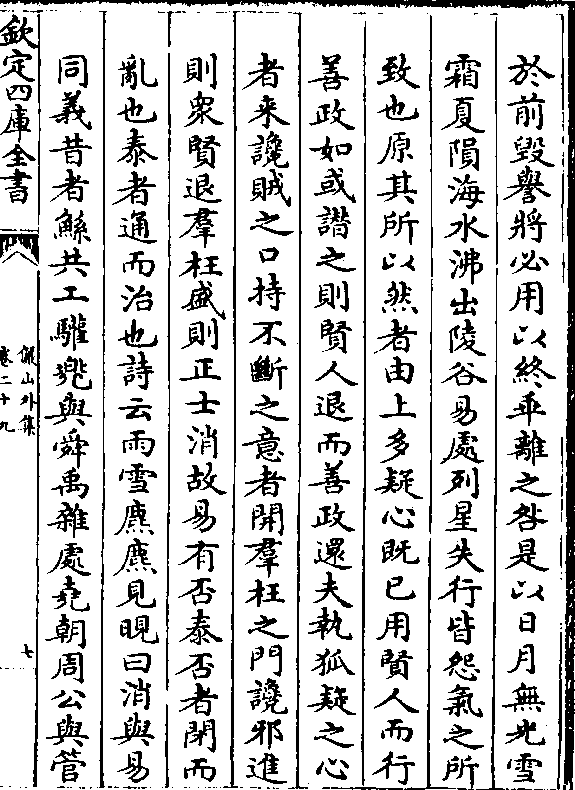 於前毀譽將必用以終乖離之咎是以日月無光雪
霜夏隕海水沸出陵谷易處列星失行皆怨氣之所
致也原其所以然者由上多疑心既已用賢人而行
善政如或譖之則賢人退而善政還夫執狐疑之心
者来讒賊之口持不斷之意者開羣枉之門讒邪進
則衆賢退羣枉盛則正士消故易有否泰否者閉而
亂也泰者通而治也詩云雨雪麃麃見晛曰消與易
同義昔者鯀共工驩兜與舜禹雜處堯朝周公與管
欽定四庫全書
儼山外集
卷二十九
七